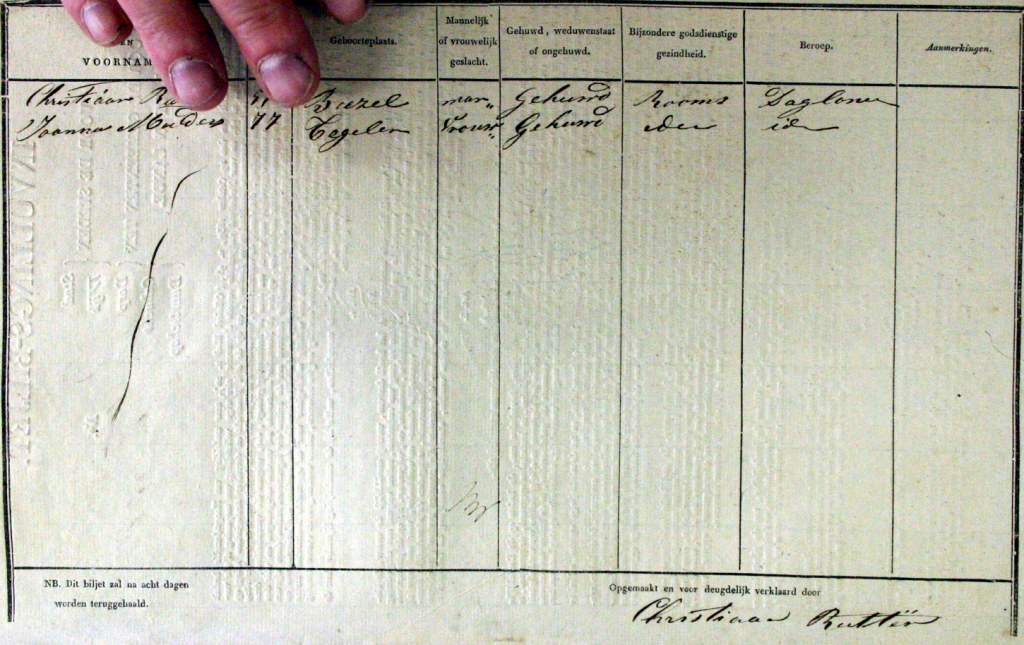 EN
VOORNAM
Geboorteplaats.
Mannelijk
of vrouwelijk
geslacht.
Gehuwd, weduwenstaat
of ongehuwd.
Bijzondere godsdienstige
gezindheid.
Beroep.
Aanmerkingen.
Christiaan Beezel man„ Gehuwd Rooms Dagloner
Joanna Mulders 77 Tegelen vrouw„ Gehuwd
NB. Dit biljet zal na acht dagen
worden teruggehaald.
Opgemaakt en voor deugdelijk verklaard door
Christiaan Rutten